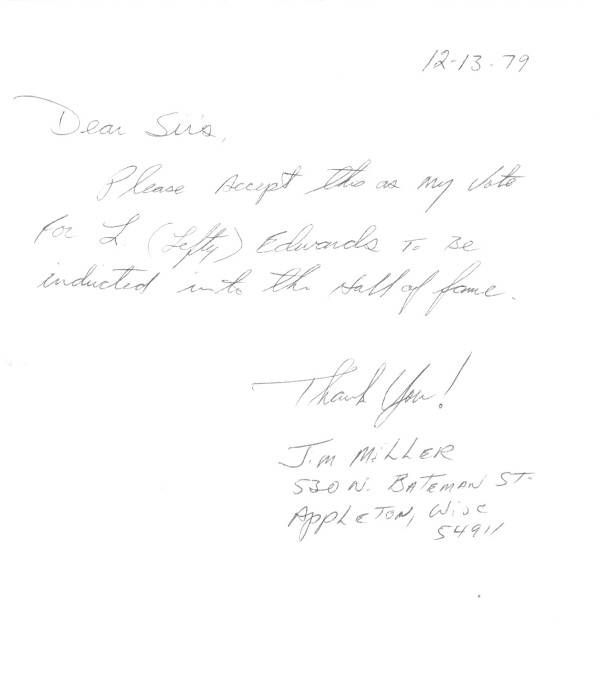 12-13-79
Dear Sirs,
Please Accept this as my Vote
For L. (Lefty) Edwards To Be
inducted into the Hall of fame.
Thank You!
Jim Miller
530 N. Bateman St.
Appleton, Wisc
54911